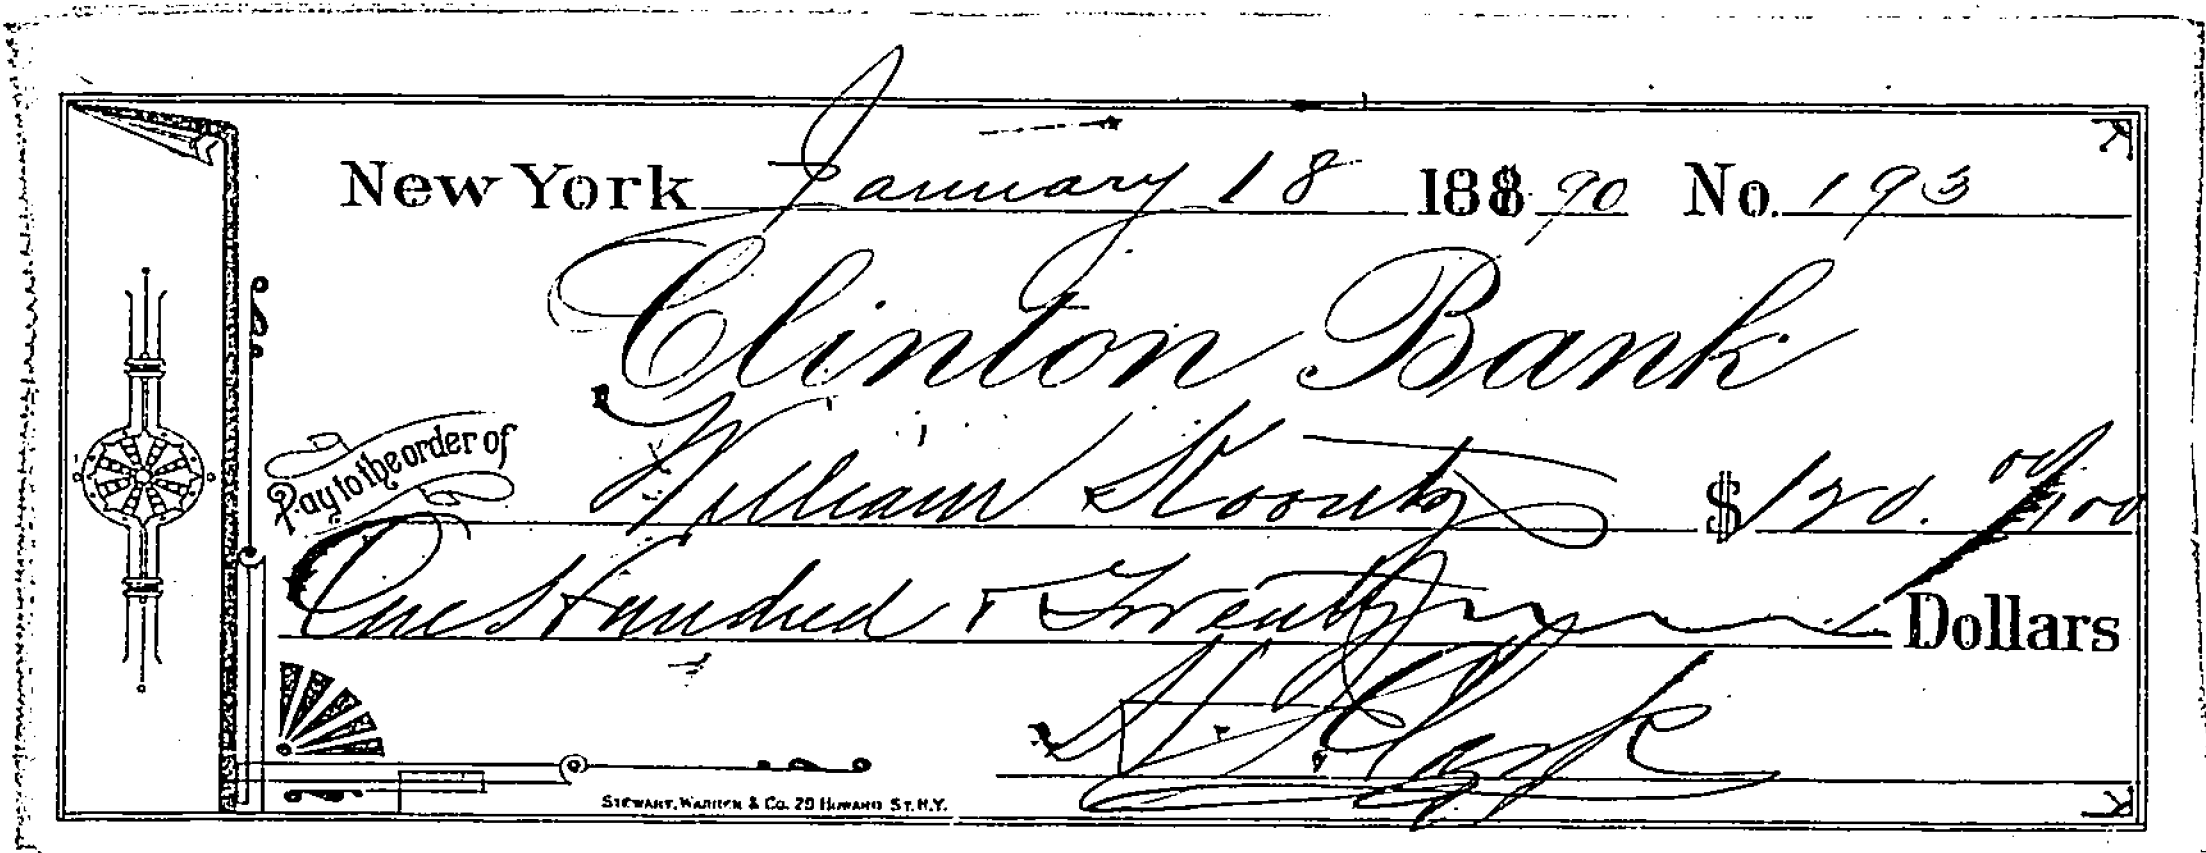 New York January 18 1890 No. 193
Clinton Bank
Pay to the order of William $120. 00/100
One Hundred & Twenty Dollars
H. Clark
Stewart, Warren & Co. 29 Howard St. N.Y.